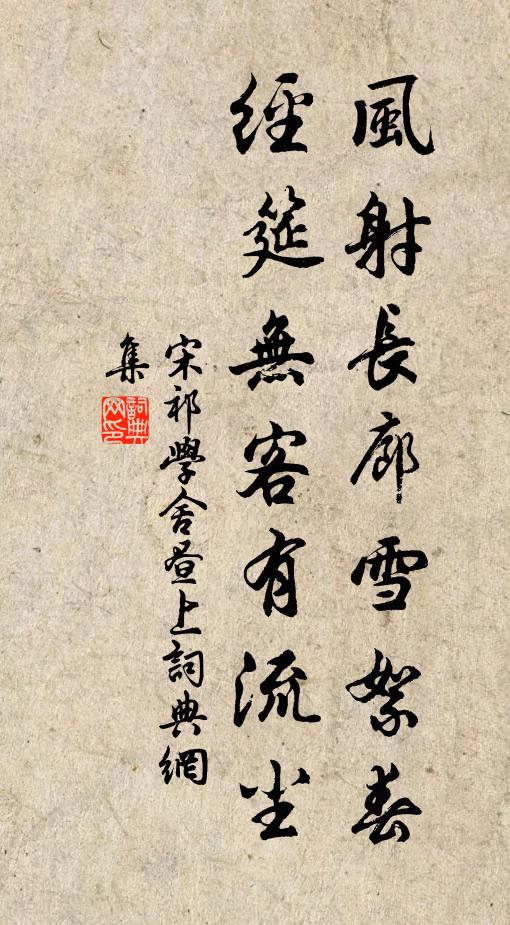 風射長廊雪絮春
經筵無客有流尘
宋祁學舍昼上詞典網
集
詞典
网印